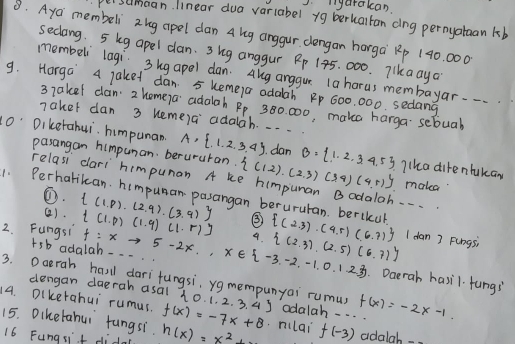 persamaan linear dua variabel yg berkaitan dng pernyataan tsb
8. Aya membeli 2 kg apel dan 4 kg anggur dengan harga Rp 140.000
sedang 5 kg apel dan 3 kg anggur Rp 175.000. Jika aya
membeli lagi 3 kg apel dan 4kg anggur Ia harus membayar ----
9. Harga 4 jaket dan 5 kemeja adalah Rp 600.000, sedang
3 jaket dan 2 kemeja adalah Rp 380.000, maka harga sebuah
jaket dan 3 kemeja adalah. ----
10. Diketahui himpunan A = {1.2,3,4} dan B = {1.2.3 4,5} Jika ditentukan
pasangan himpunan berurutan {(1,2). (2,3) (3,4) (4,5)} maka
relasi dari himpunan A ke himpunan B adalah ----
1. Perhatikan himpunan pasangan berurutan berikut.
①. { (1.p). (2.q). (3.q) } ③ {(2.3). (4.5) (6.7)} 1 dan 3 Fungsi
(2). { (1.p) (1.q) (1.r) } 4. { (2.3). (2.5) (6.7) }
2. Fungsi f : x → 5 - 2x.. x ∈ {-3,-2,-1,0,1,2,3}. Daerah hasil fungsi
tsb adalah ----
3. Daerah hasil dari fungsi, yg mempunyai rumus f(x) = -2x -1.
dengan daerah asal {0.1.2.3.4} adalah ----
14. Diketahui rumus. f(x) = -7x + 8. nilai f(-3) adalah --
15. Diketahui fungsi. h(x) = x² +
16 Fungsi f